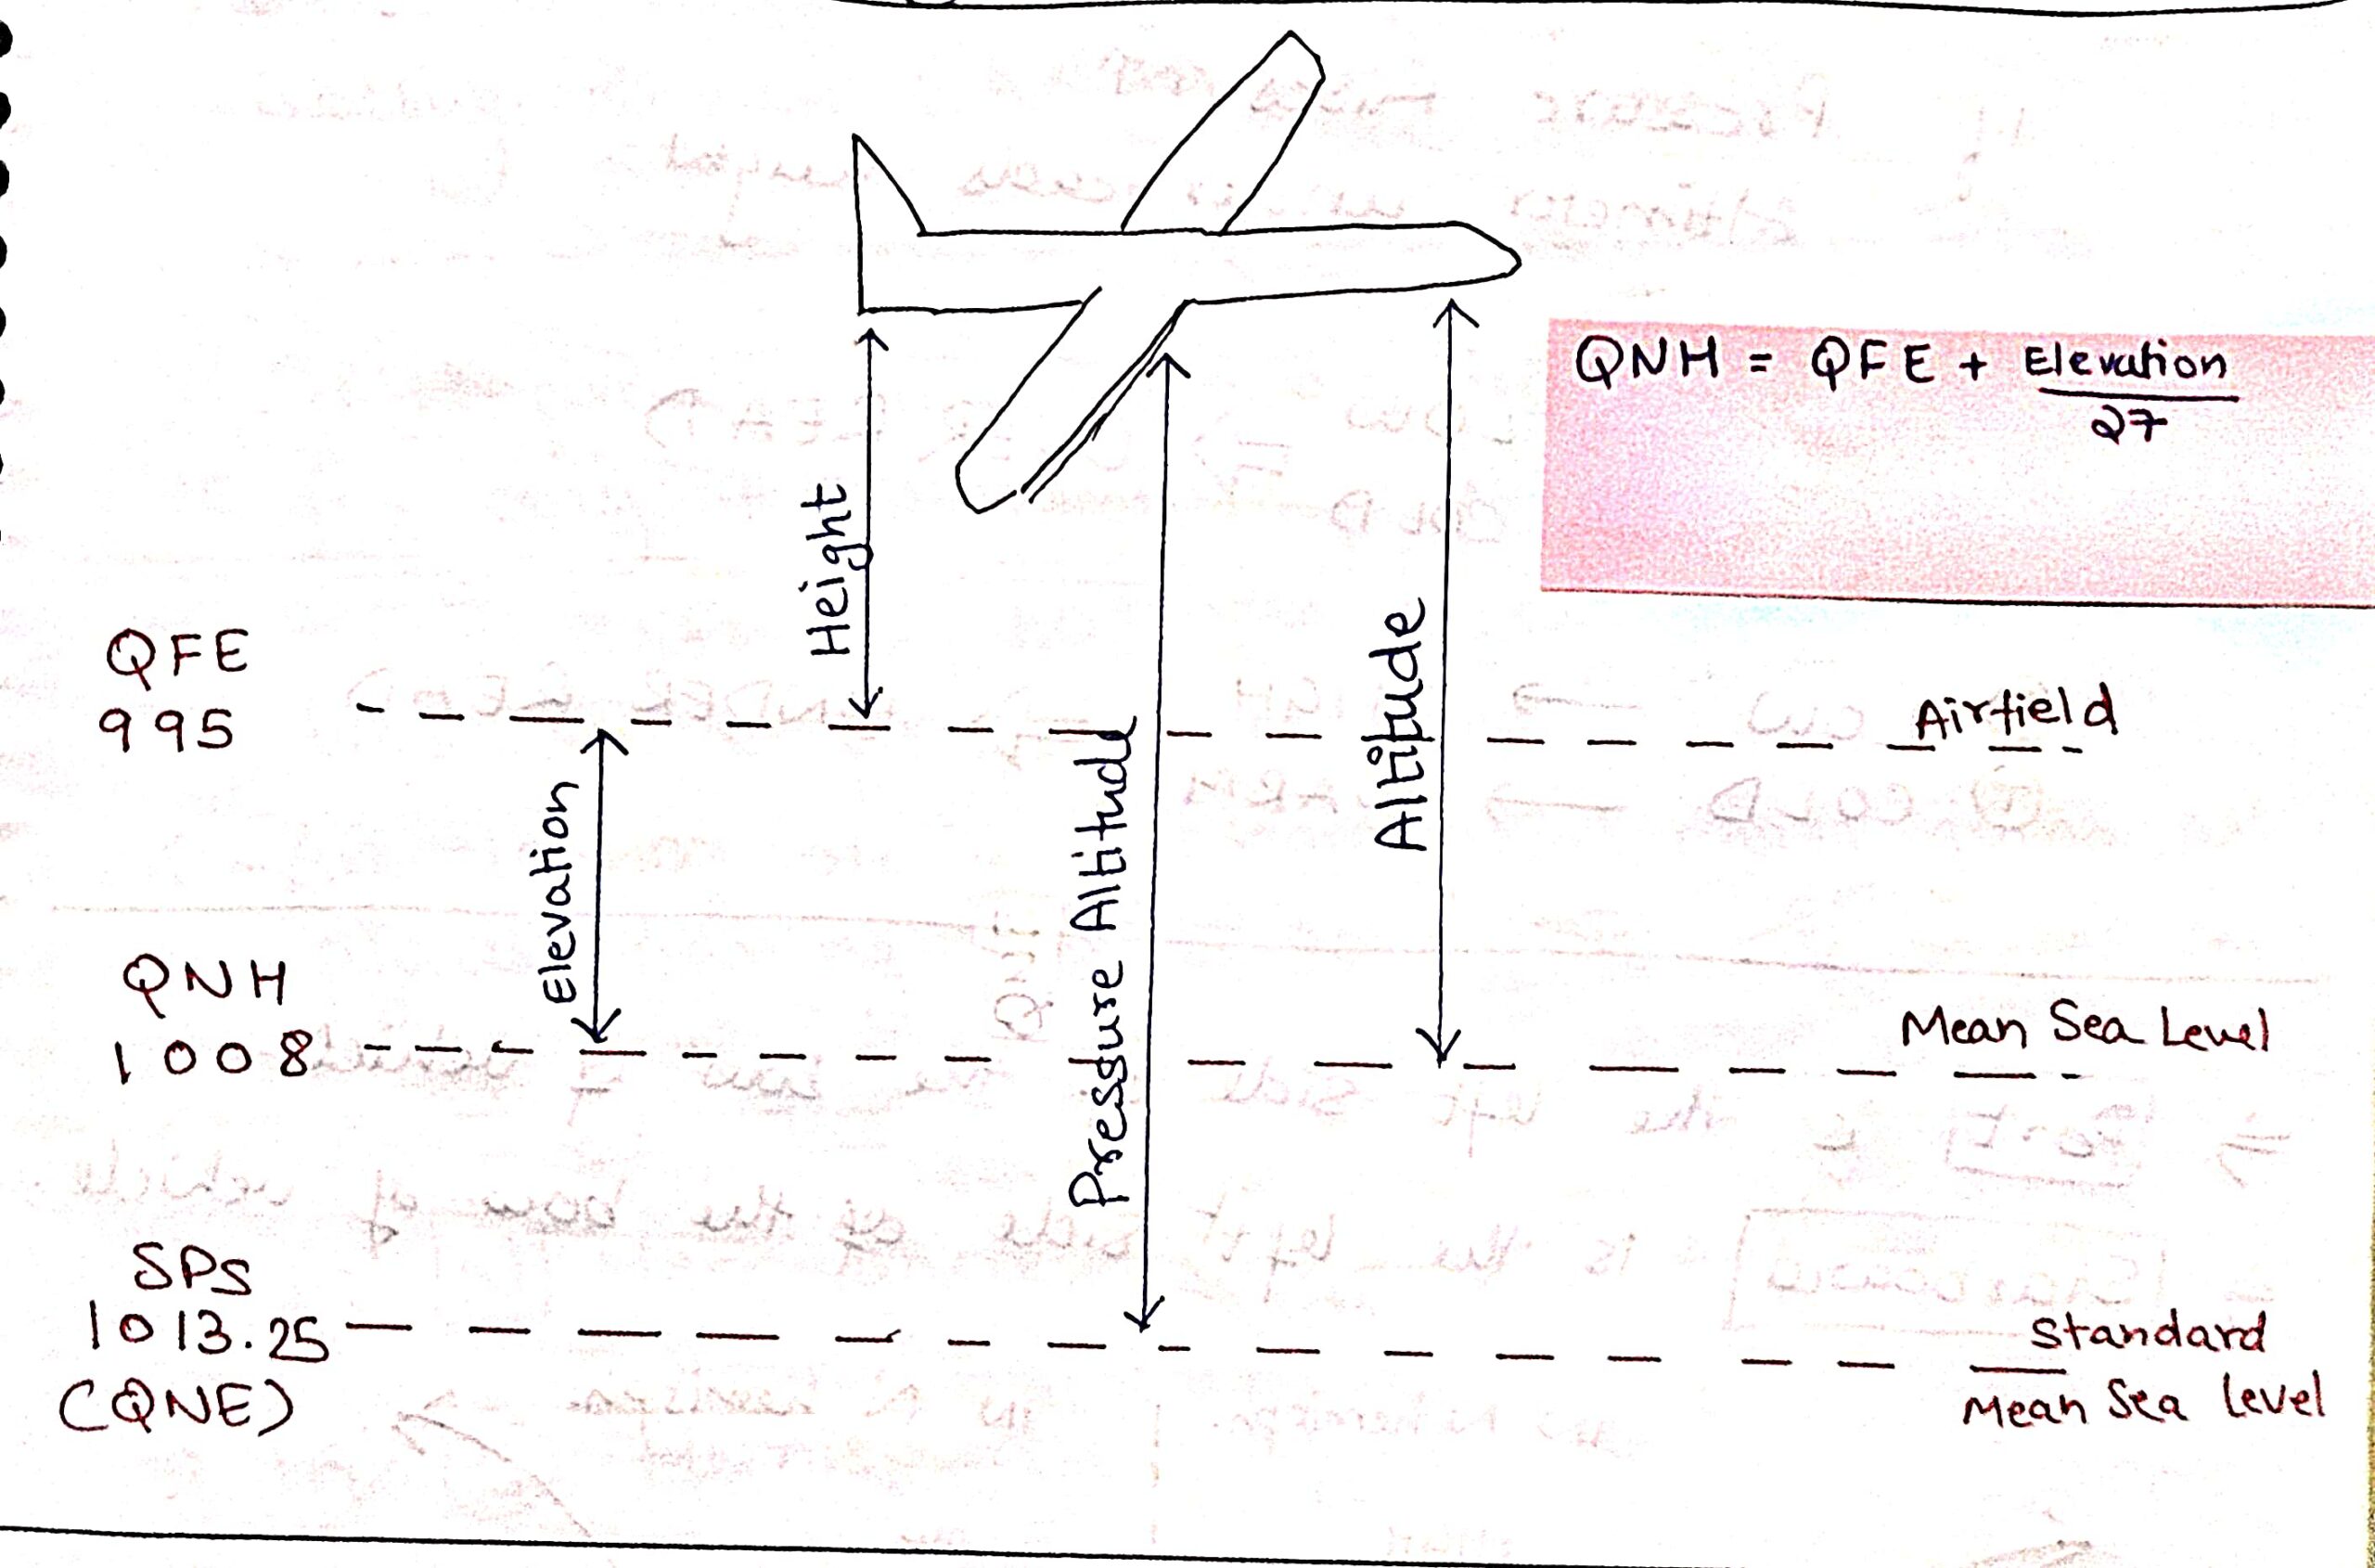 QNH = QFE + Elevation
27
Height
QFE
995
Airfield
Altitude
Pressure Altitude
Elevation
QNH
1008
Mean Sea Level
SPS
1013.25
(QNE)
Standard
Mean Sea level